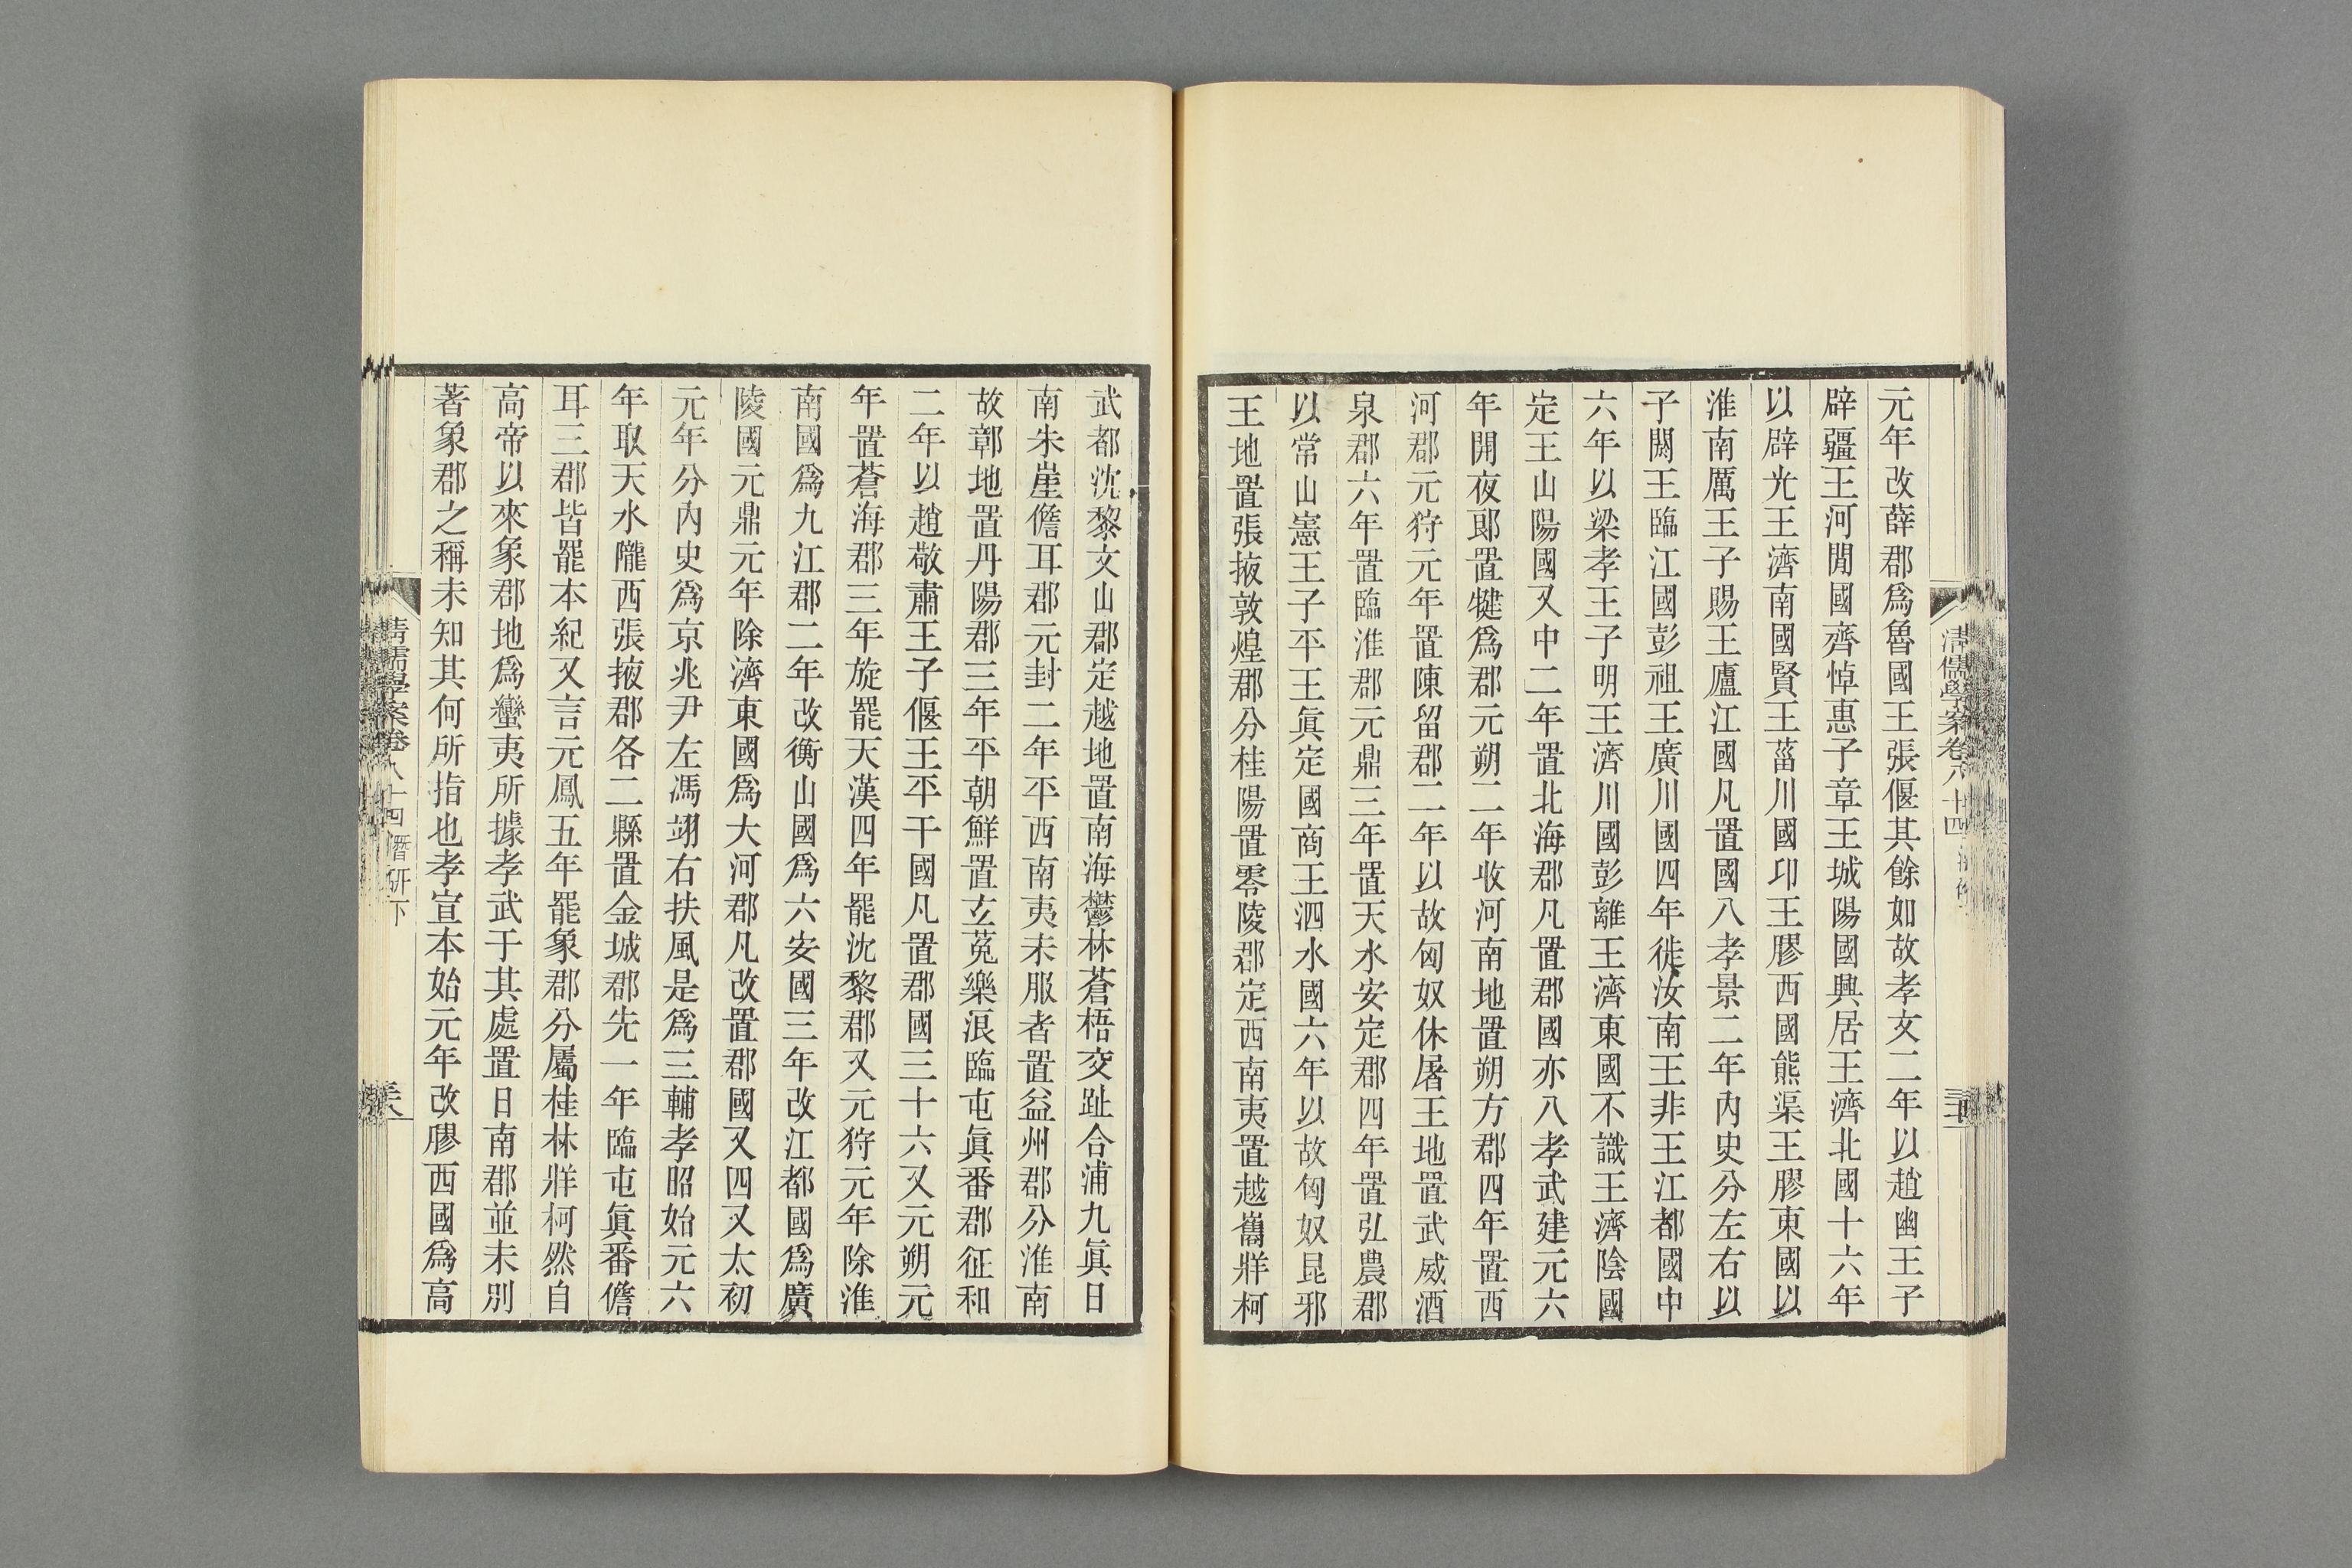 元年改薛郡爲魯國王張偃其餘如故孝文二年以趙幽王子
辟疆王河閒國齊悼惠子章王城陽國興居王濟北國十六年
以辟光王濟南國賢王菑川國卬王膠西國熊渠王膠東國以
淮南厲王子賜王廬江國凡置國八孝景二年內史分左右以
子閼王臨江國彭祖王廣川國四年徙汝南王非王江都國中
六年以梁孝王子明王濟川國彭離王濟東國不識王濟陰國
定王山陽國又中二年置北海郡凡置郡國亦八孝武建元六
年開夜郎置犍爲郡元朔二年收河南地置朔方郡四年置西
河郡元狩元年置陳留郡二年以故匈奴休屠王地置武威酒
泉郡六年置臨淮郡元鼎三年置天水安定郡四年置弘農郡
以常山憲王子平王眞定國商王泗水國六年以故匈奴昆邪
王地置張掖敦煌郡分桂陽置零陵郡定西南夷置越巂牂柯
武都沈黎文山郡定越地置南海鬱林蒼梧交趾合浦九眞日
南朱崖儋耳郡元封二年平西南夷未服者置益州郡分淮南
故鄣地置丹陽郡三年平朝鮮置玄菟樂浪臨屯眞番郡征和
二年以趙敬肅王子偃王平干國凡置郡國三十六又元朔元
年置蒼海郡三年旋罷天漢四年罷沈黎郡又元狩元年除淮
南國爲九江郡二年改衡山國爲六安國三年改江都國爲廣
陵國元鼎元年除濟東國爲大河郡凡改置郡國又四又太初
元年分內史爲京兆尹左馮翊右扶風是爲三輔孝昭始元六
年取天水隴西張掖郡各二縣置金城郡先一年臨屯眞番儋
耳三郡皆罷本紀又言元鳳五年罷象郡分屬桂林牂柯然自
高帝以來象郡地爲蠻夷所據孝武于其處置日南郡並未別
著象郡之稱未知其何所指也孝宣本始元年改膠西國爲高
清儒學案卷八十四
清儒學案卷八十四 潛研下